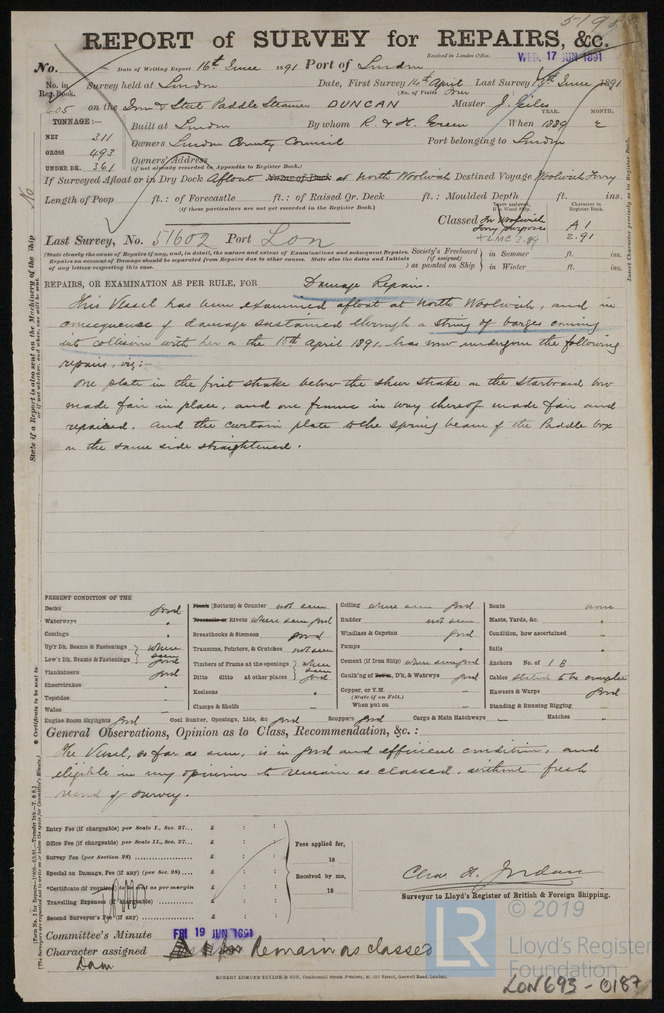 5198
REPORT of SURVEY for REPAIRS, &c.
Received in London Office, WED. 17 JUN 1891
No. Date of Writing Report 16th June 1891 Port of London
No. in Reg. Book. Survey held at London Date, First Survey 14th April Last Survey June 1891
(No. of Visits Four
405 on the Iron & Steel Paddle Steamer DUNCAN Master J. Giles
TONNAGE:— YEAR. MONTH.
NET 311 Built at London By whom R & H. Green When 1889 2
GROSS 493 Owners London County Council Port belonging to London
UNDER DK. 361 Owners' Address
(if not already recorded in Appendix to Register Book.)
If Surveyed Afloat or in Dry Dock Afloat Name of Dock at North Woolwich Destined Voyage Woolwich Ferry
Length of Poop ft.: of Forecastle ft.: of Raised Qr. Deck ft.: Moulded Depth ft. ins.
(if these particulars are not yet recorded in the Register Book.)
Classed For Woolwich Ferry purposes
+LMC 2.89
Character in Register Book.
A 1
2.91
Last Survey, No. 51602 Port Lon
(State clearly the cause of Repairs if any, and, in detail, the nature and extent of Examinations and subsequent Repairs.
Repairs on account of Damage should be separated from Repairs due to other causes. State also the dates and Initials
of any letters respecting this case.
Society's Freeboard (if assigned) as painted on Ship
in Summer ft. ins.
in Winter ft. ins.
REPAIRS, OR EXAMINATION AS PER RULE, FOR Damage Repairs.
This Vessel has been examined afloat at North Woolwich, and in
consequence of damage sustained through a string of barges coming
into collision with her on the 10th April 1891, has now undergone the following
repairs, viz:—
One plate in the first strake below the sheer strake on the starboard bow
made fair in place, and one frame in way thereof made fair and
repaired. And the curtain plate to the spring beam of the Paddle box
on the same side straightened.
State if a Report is also sent on the Machinery of the Ship
PRESENT CONDITION OF THE
Decks good
Waterways "
Comings "
Upr Dk. Beams & Fastenings where seen
Low'r Dk. Beams & Fastenings good
Planksheers good
Sheerstrakes "
Topsides "
Wales –
Engine Room Skylights good
Plank (Bottom) & Counter not seen
Treenails or Rivets where seen good
Breasthooks & Stemson good
Transoms, Pointers, & Crutches not seen
Timbers of Frame at the openings where seen
Ditto ditto at other places good
Keelsons "
Clamps & Shelfs –
Coal Bunker, Openings, Lids, &c good
Ceiling where seen good
Rudder not seen
Windlass & Capstan good
Pumps "
Cement (if Iron Ship) where seen good
Caulk'ng of Bottom, D'k, & Watrwys good
Copper, or Y.M.
(State if on Felt.)
When put on –
Scuppers good
Cargo & Main Hatchways –
Boats none
Masts, Yards, &c. "
Condition, how ascertained "
Sails "
Anchors No. of 1 B
Cables stated to be complete
Hawsers & Warps good
Standing & Running Rigging –
Hatches "
General Observations, Opinion as to Class, Recommendation, &c.:
The Vessel, so far as seen, is in good and efficient condition, and
eligible in my opinion to remain as classed, without fresh
record of survey.
Entry Fee (if chargeable) per Scale I., Sec. 27... £ : :
Office Fee (if chargeable) per Scale II., Sec. 27... £ : :
Survey Fee (per Section 28) £ : :
Special on Damage, Fee (if any) (per Sec. 28)... £ : :
*Certificate (if required) to be sent as per margin £ : :
Travelling Expenses (if chargeable) £ : :
Second Surveyor's Fee (if any) £ : :
Fees applied for,
18
Received by me,
18
Chas H. Jordan
Surveyor to Lloyd's Register of British & Foreign Shipping.
Committee's Minute FRI 19 JUN 1891
Character assigned Remain as classed
Dam
ROBERT EDMUND TAYLOR & SON, Commercial Steam Printers, 19, Old Street, Goswell Road, London.
LR
© 2019
Lloyd's Register
Foundation
LON693-0187